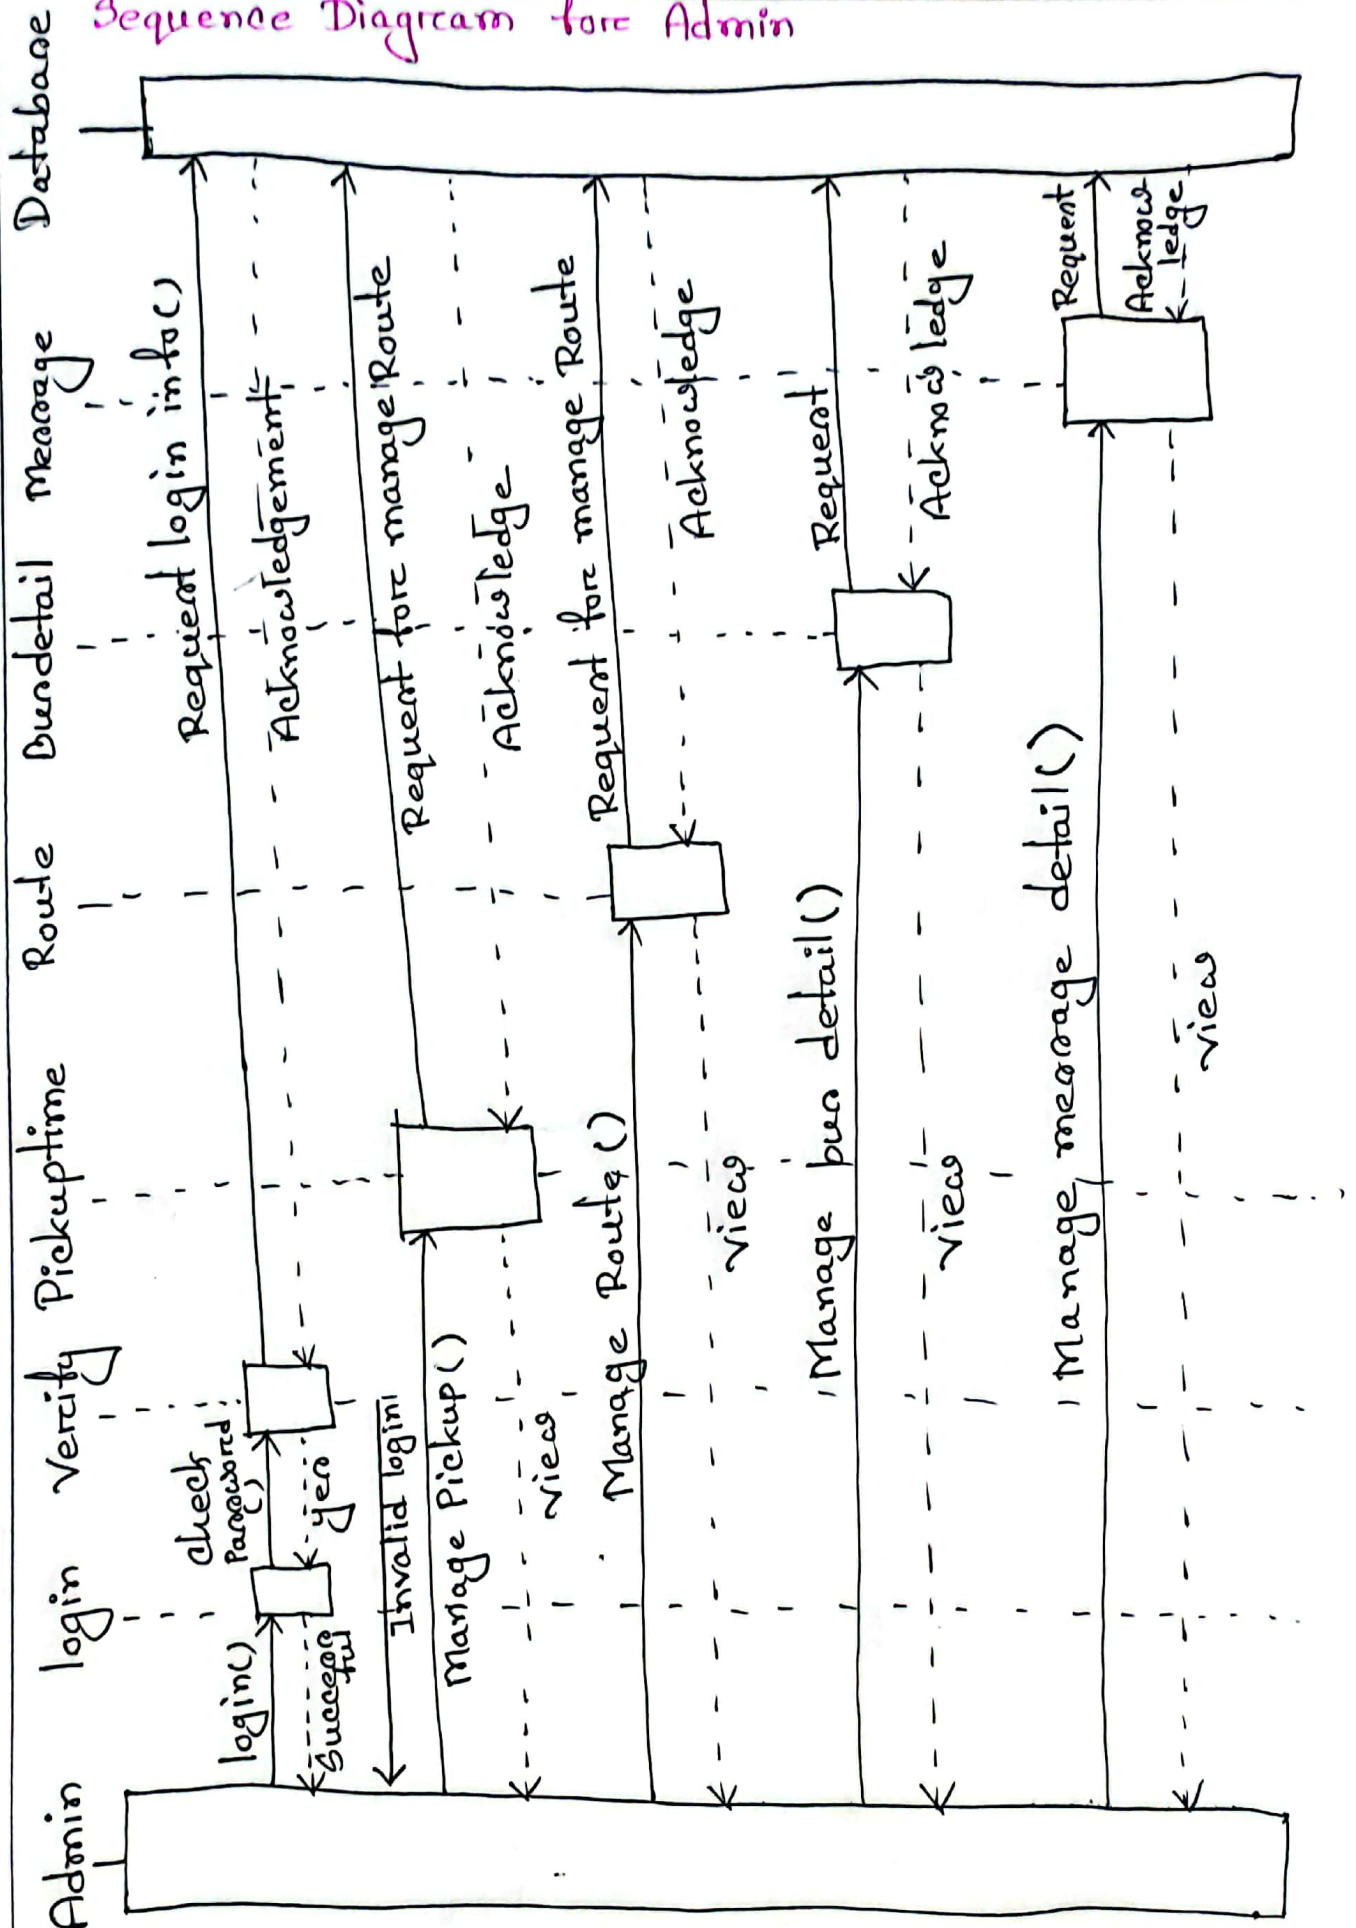 Sequence Diagram for Admin
Admin
login
Verify
Pickuptime
Route
Busdetail
Message
Database
login()
Successful
Check
Password
()
yes
Request login info()
Acknowledgement
Invalid login
Manage Pickup()
Request for manage Route
Acknowledge
view
Manage Route()
Request for manage Route
Acknowledge
view
Manage bus detail()
Request
Acknowledge
view
Manage message detail()
Request
Acknow
ledge
view